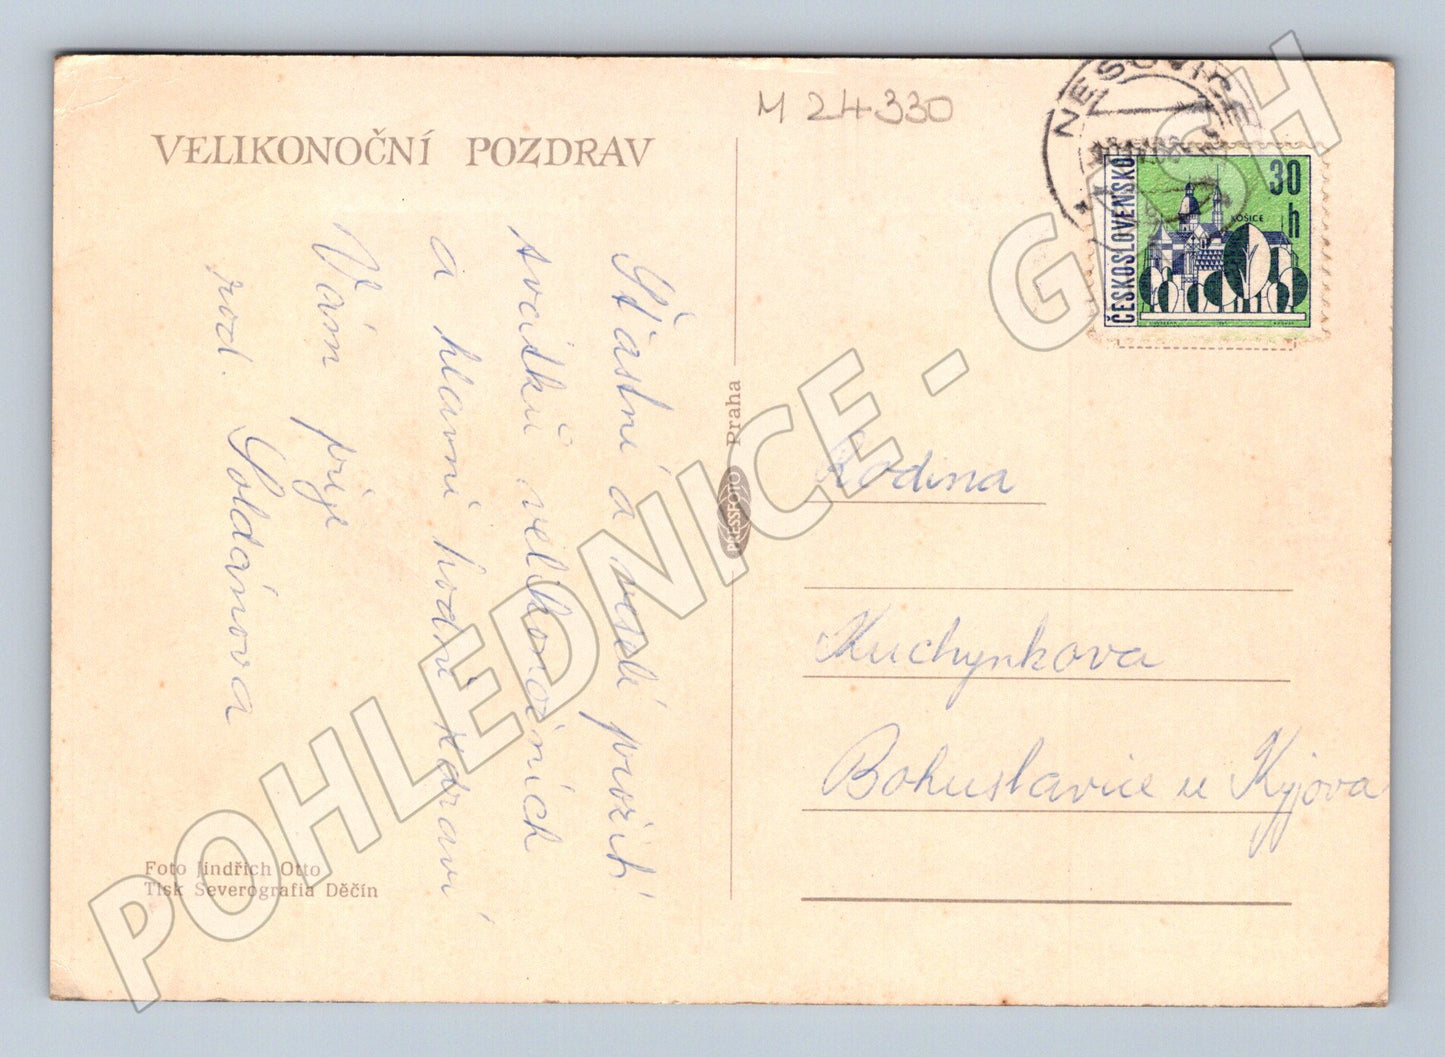 M 24330
NESOVICE
VELIKONOČNÍ POZDRAV
ČESKOSLOVENSKO
30
h
KOŠICE
Šťastné a veselé prožití
svátků velikonočních
a hlavně hodně zdraví
Vám přeje
rod. Soldánova
PRESSFOTO Praha
Rodina
Kuchynkova
Bohuslavice u Kyjova
Foto Jindřich Otto
Tisk Severografia Děčín
POHLEDNICE - GASH